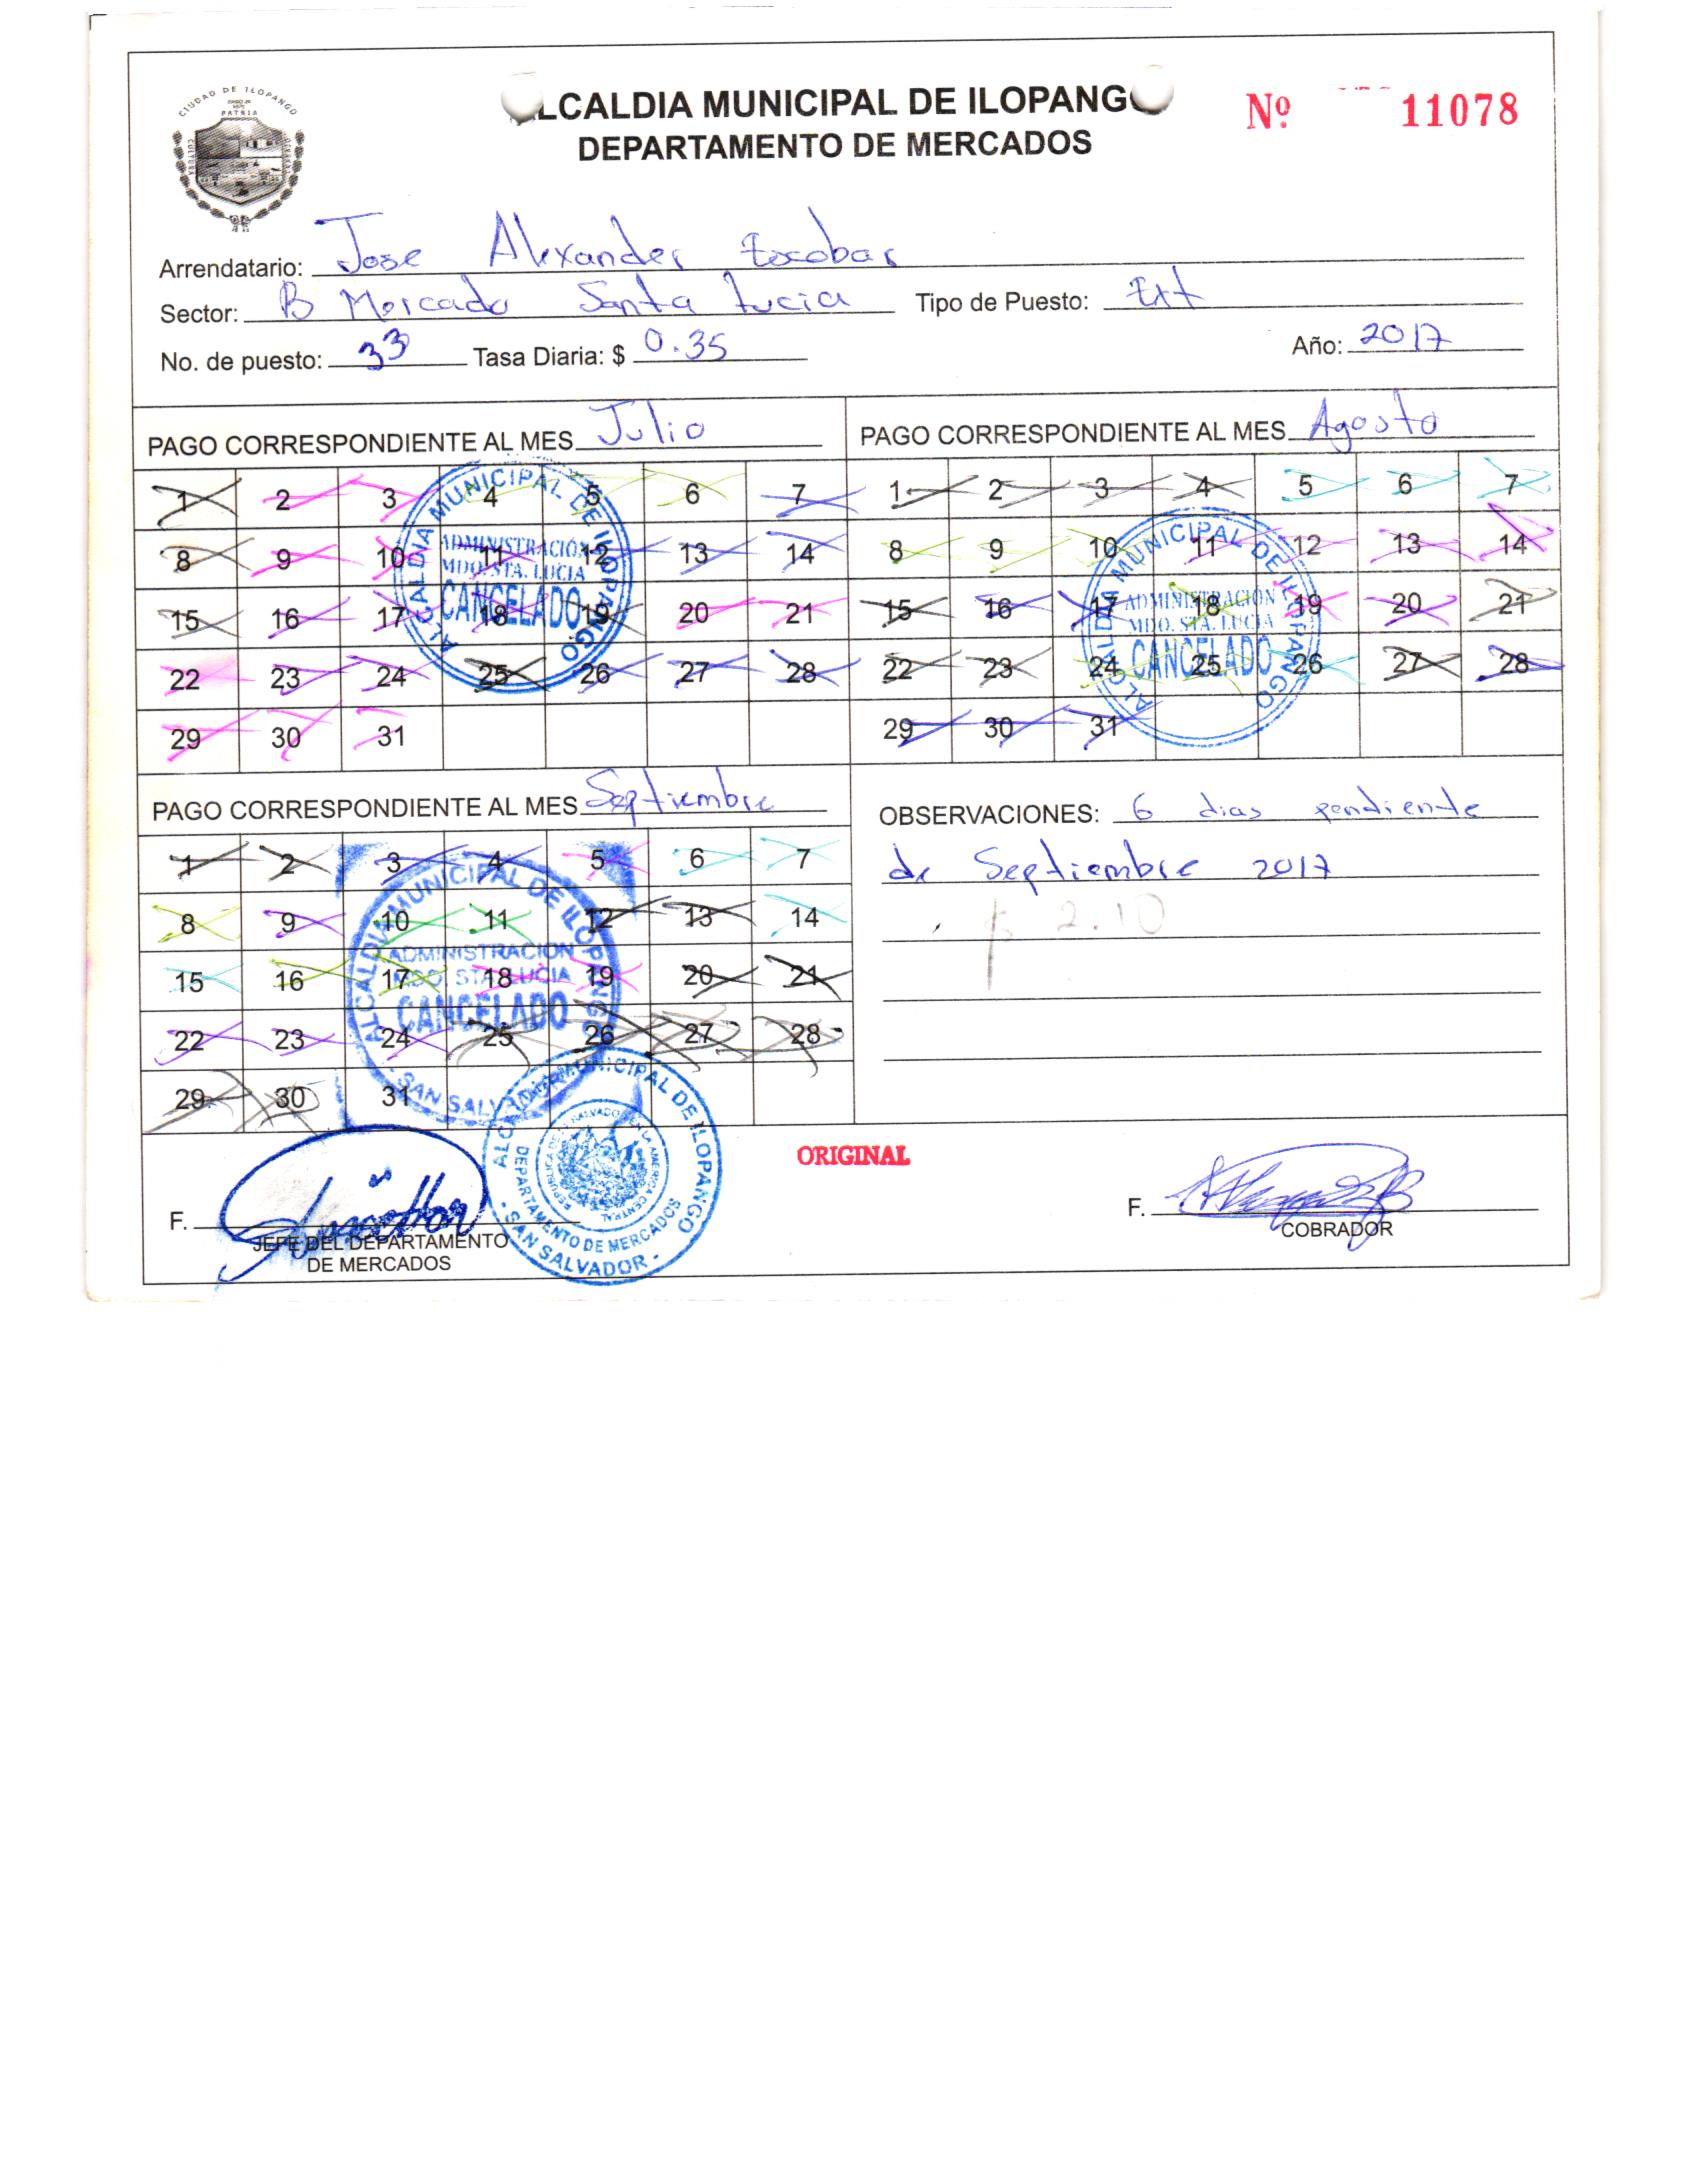 CIUDAD DE ILOPANGO
PATRIA
ALCALDIA MUNICIPAL DE ILOPANGO
DEPARTAMENTO DE MERCADOS
Nº 11078
Arrendatario: Jose Alexander Escobar
Sector: B Mercado Santa Lucia Tipo de Puesto: Ext
No. de puesto: 33 Tasa Diaria: $ 0.35 Año: 2017
PAGO CORRESPONDIENTE AL MES Julio
1 2 3 4 5 6 7
8 9 10 11 12 13 14
15 16 17 18 19 20 21
22 23 24 25 26 27 28
29 30 31
ALCALDIA MUNICIPAL DE ILOPANGO
ADMINISTRACIÓN
MDO. STA. LUCIA
CANCELADO
PAGO CORRESPONDIENTE AL MES Agosto
1 2 3 4 5 6 7
8 9 10 11 12 13 14
15 16 17 18 19 20 21
22 23 24 25 26 27 28
29 30 31
ALCALDIA MUNICIPAL DE ILOPANGO
ADMINISTRACIÓN
MDO. STA. LUCIA
CANCELADO
PAGO CORRESPONDIENTE AL MES Septiembre
1 2 3 4 5 6 7
8 9 10 11 12 13 14
15 16 17 18 19 20 21
22 23 24 25 26 27 28
29 30 31
ALCALDIA MUNICIPAL DE ILOPANGO
ADMINISTRACION
MDO. STA LUCIA
CANCELADO
SAN SALVADOR
OBSERVACIONES: 6 dias pendiente
de Septiembre 2017
$ 2.10
ORIGINAL
F.
JEFE DEL DEPARTAMENTO
DE MERCADOS
ALCALDIA MUNICIPAL DE ILOPANGO
DEPARTAMENTO DE MERCADOS
- SAN SALVADOR -
REPUBLICA DE EL SALVADOR EN LA AMERICA CENTRAL
F.
COBRADOR